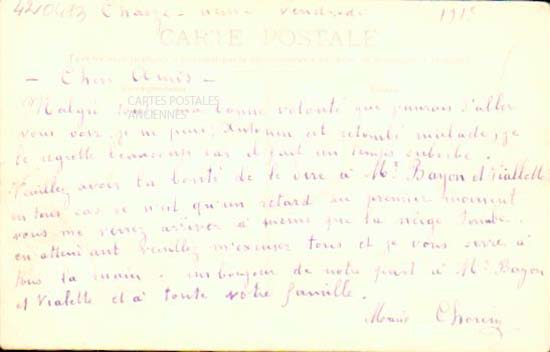 4210473 Charge - vendredi 1915
CARTE POSTALE
- Chers Amis -
CARTES POSTALES
ANCIENNES
Malgré toute ma bonne volonté que j'aurais d'aller
vous voir, je ne puis, est retombé malade, je
le regrette beaucoup car il fait un temps suberbe.
Veuillez avoir la bonté de le dire à Mr. Bayon et Vialette
en tous cas ce n'est qu'un retard au premier moment
vous me verrez arriver à moins que la neige tombe.
en attendant veuillez m'excuser tous et je vous serre à
tous la main. un bonjour de notre part à Mr. Bayon
et Vialette et à toute votre famille.